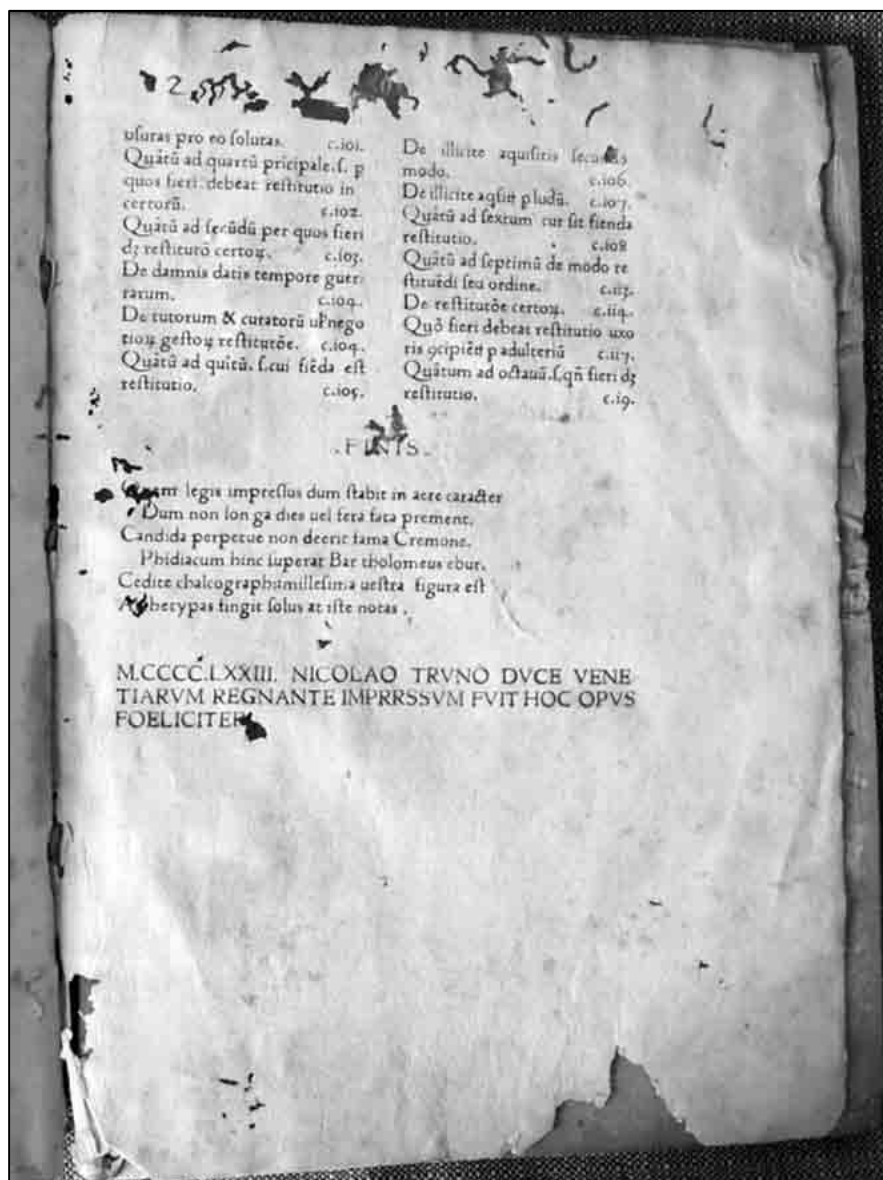 usuras pro eo solutas. c.101.
Quãtũ ad quartũ pricipale.s. p
quos fieri debeat restitutio in
certorũ. c.102.
Quãtũ ad secũdũ per quos fieri
dꝫ restitutõ certoꝝ. c.103.
De damnis datis tempore guer
rarum. c.104.
De tutorum & curatorũ ul' nego
tioꝝ gestoꝝ restitutõe. c.104.
Quãtũ ad quĩtũ. s.cui fiẽda est
restitutio. c.105.
De illicite aquisitis
modo. c.106.
De illicite aqsitis p ludũ. c.107.
Quãtũ ad sextum cur sit fienda
restitutio. c.108
Quãtũ ad septimũ de modo re
stituẽdi seu ordine. c.113.
De restitutõe certoꝝ. c.114.
Quõ fieri debeat restitutio uxo
ris ꝯcipiẽti p adulteriũ c.117.
Quãtum ad octauũ.s.qñ fieri dꝫ
restitutio. c.19.
.FINIS.
legis impressus dum stabit in aere caracter
Dum non lon ga dies uel fera fata prement.
Candida perpetue non deerit fama Cremone.
Phidiacum hinc superat Bar tholomeus ebur.
Cedite chalcographi:millesima uestra figura est
fingit solus at iste notas .
M.CCCC.LXXIII. NICOLAO TRVNO DVCE VENE
TIARVM REGNANTE IMPRRSSVM FVIT HOC OPVS
FOELICITER